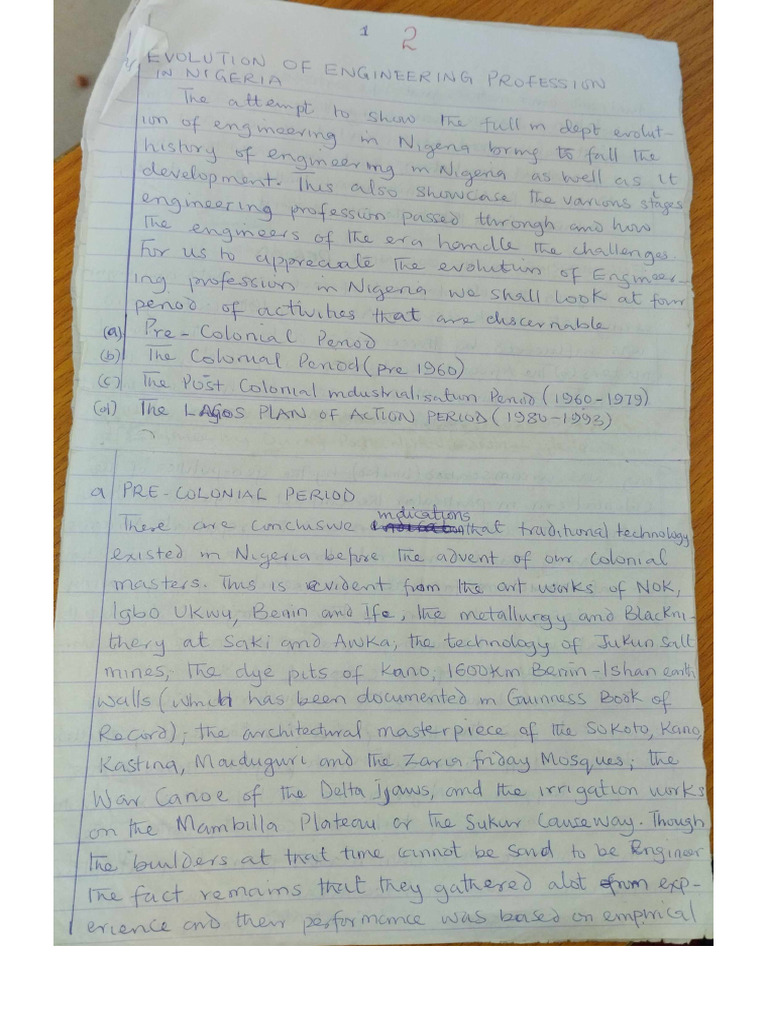 1 2
EVOLUTION OF ENGINEERING PROFESSION
IN NIGERIA
The attempt to show the full in dept evolut-
ion of engineering in Nigeria bring to fall the
history of engineering in Nigeria as well as it
development. This also showcase the various stages
engineering profession passed through and how
the engineers of the era handle the challenges.
For us to appreciate the evolution of Engineer-
ing profession in Nigeria we shall look at four
period of activities that are discernable
(a) Pre-Colonial Period
(b) The Colonial Period (pre 1960)
(c) The Post Colonial industrialisation Period (1960-1979)
(d) The LAGOS PLAN OF ACTION PERIOD (1980-1993)
a PRE-COLONIAL PERIOD
There are conclusive indications that traditional technology
existed in Nigeria before the advent of our colonial
masters. This is evident from the art works of NOK,
Igbo UKWU, Benin and Ife, the metallurgy and Blackni-
thery at Saki and Awka, the technology of Jukun salt
mines, the dye pits of Kano, 1600km Benin-Ishan earth
walls (which has been documented in Guinness Book of
Record); the architectural masterpiece of the Sokoto, Kano,
Kastina, Maiduguri and the Zaria friday Mosques; the
War Canoe of the Delta Ijaws, and the irrigation works
on the Mambilla Plateau or the Sukur Causeway. Though
the builders at that time cannot be said to be Engineer
the fact remains that they gathered alot from exp-
erience and their performance was based on empirical